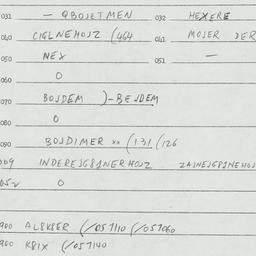 031 — QBOJETMEN 032 HEXERE
040 CIGLNEHOJZ (464 041 MOJER DER
050 NEX 051 —
060 O
070 BOJDEM )-BEJDEM
080 O
090 BOJDIMER xx (131 (126
INDEREJGBINERHOJZ
O
900 AL8K8ER (/057110 (/057060
900 K8IX (/057140